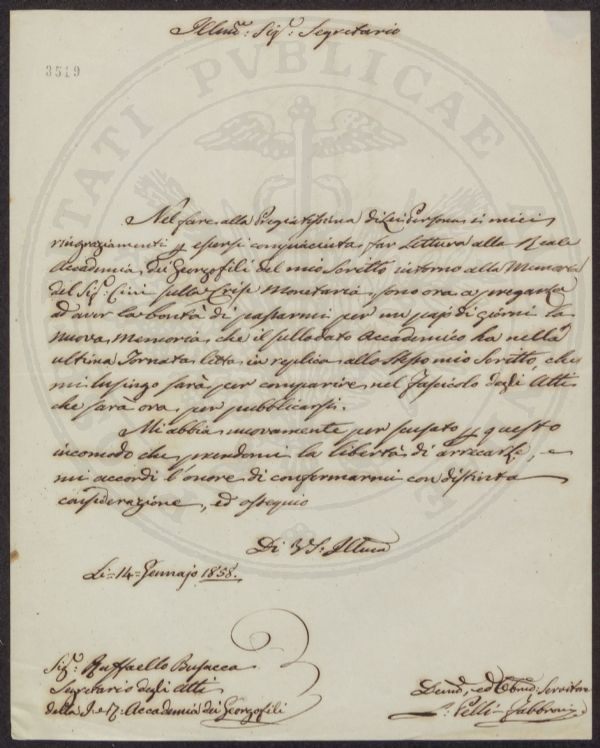 Illmo: Sigr: Segretario
3519
PROSPERITATI PVBLICAE AVGENDAE
Nel fare alla Pregiatissima di Lei Persona i miei
ringraziamenti p essersi compiaciuta far Lettura alla Reale
Accademia dei Georgofili del mio Scritto intorno alla Memoria
del Sigr: Cini sulla Crise Monetaria, sono ora a pregarla
ad aver la bontà di passarmi per un pajo di giorni la
nuova Memoria, che il sullodato Accademico ha nella
ultima Tornata letta in replica allo stesso mio Scritto, che
mi lusingo sarà per comparire nel Fascicolo degli Atti
che sarà ora per pubblicarsi.
Mi abbia nuovamente per scusato p questo
incomodo che prendomi la libertà di arrecarle, e
mi accordi l'onore di confermarmi con distinta
considerazione, ed ossequio
Di VS: Illma
Li= 14= Gennajo 1858.
Sigr: Raffaello Busacca
Segretario degli Atti
della I. e R. Accademia dei Georgofili
Devmo, ed Obbmo: Servitore
Pelli-Fabbroni